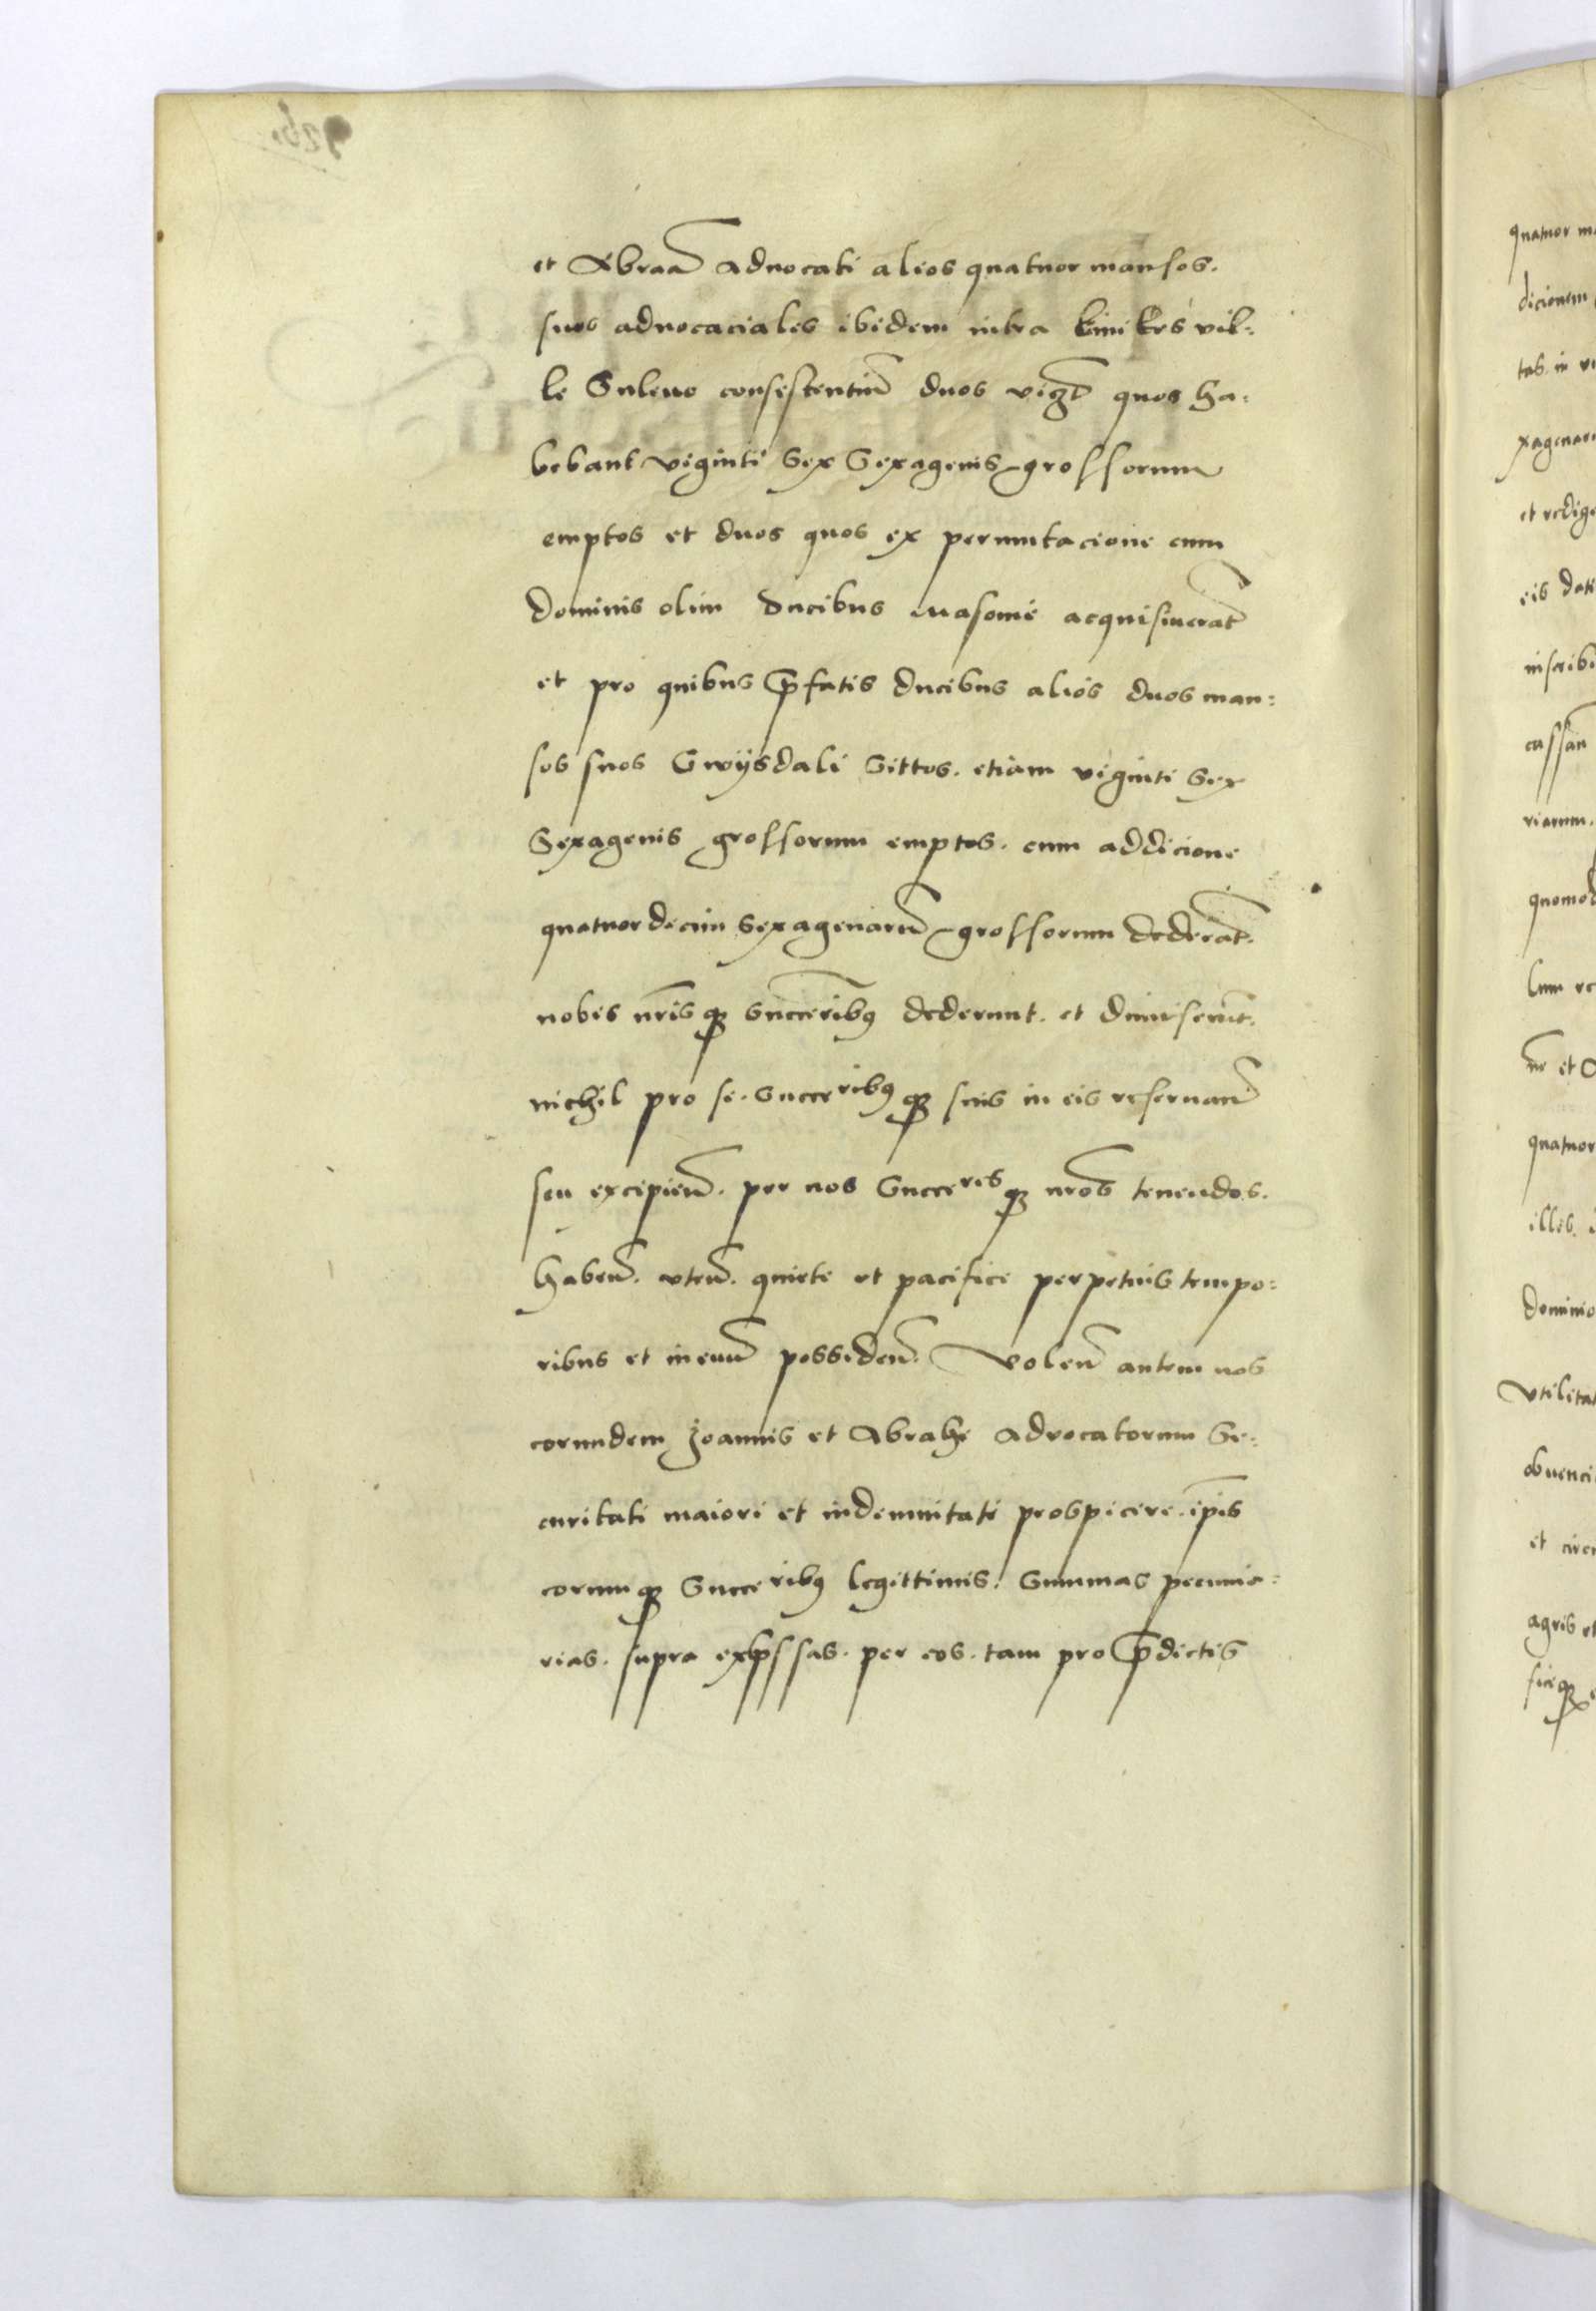 et Abraã advocati alios quatuor mansos.
suos advocaciales ibidem intra limites vil:
le Suleuo consistentiũ duos vigꝫ quos ha:
bebant viginti sex Sexagenis grossorum
emptos et duos quos ex permutacione cum
dominis olim ducibus Masouie acquisiuerãt
et pro quibus p̃fatis ducibus alios duos man:
sos suos Gwysdali sittos. etiam viginti sex
Sexagenis grossorum emptos. cum addicione
quatuordecim sexagenarũ grossorum dederãt.
nobis nr̃isqꝫ succerĩbꝯ dederunt. et dimiserũt.
nichil pro se. succeribꝯqꝫ suis in eis reseruan̄
seu excipien̄. per nos Succeresqꝫ nr̃os tenendos.
haben̄. vten̄. quiete et pacifice perpetuis tempo:
ribus et in euũ possiden̄. Volen̄ autem nos
eorundem Joannis et Abrahe Advocatorum se:
curitati maiori et indemnitati prospicere. ip̃is
eorumqꝫ Succeribꝯ legittimis. Summas pecunia:
rias. supra exp̃ssas. per eos. tam pro p̃dictis
quatuor
dicionem
et redige
eis dati
inscribi
cassan
riarum.
lum re
et
quatuor
illis.
dominio
vtilitat
obuenci
et
agris et
ficeqꝫ